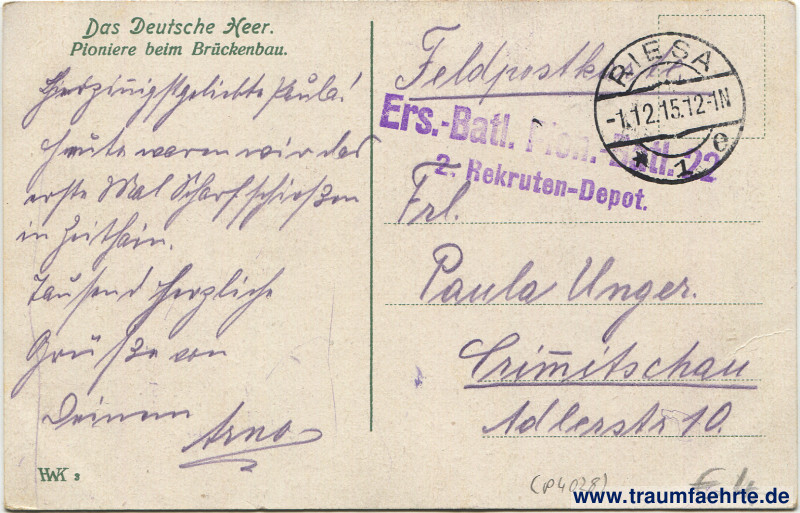 Das Deutsche Heer.
Pioniere beim Brückenbau.
Herzinnigstgeliebte Paula!
Heute waren wir das
erste Mal Scharfschießen
in Zeithain.
Tausend herzliche
Grüße von
Deinem
Arno
HWK 3
Feldpostkarte
RIESA
-1.12.15.12-1N
* 1 e
Ers.-Batl. Pion.-Batl. 22
2. Rekruten-Depot.
Frl.
Paula Unger.
Crimmitschau
Adlerstr 10.
(P4028)
www.traumfaehrte.de